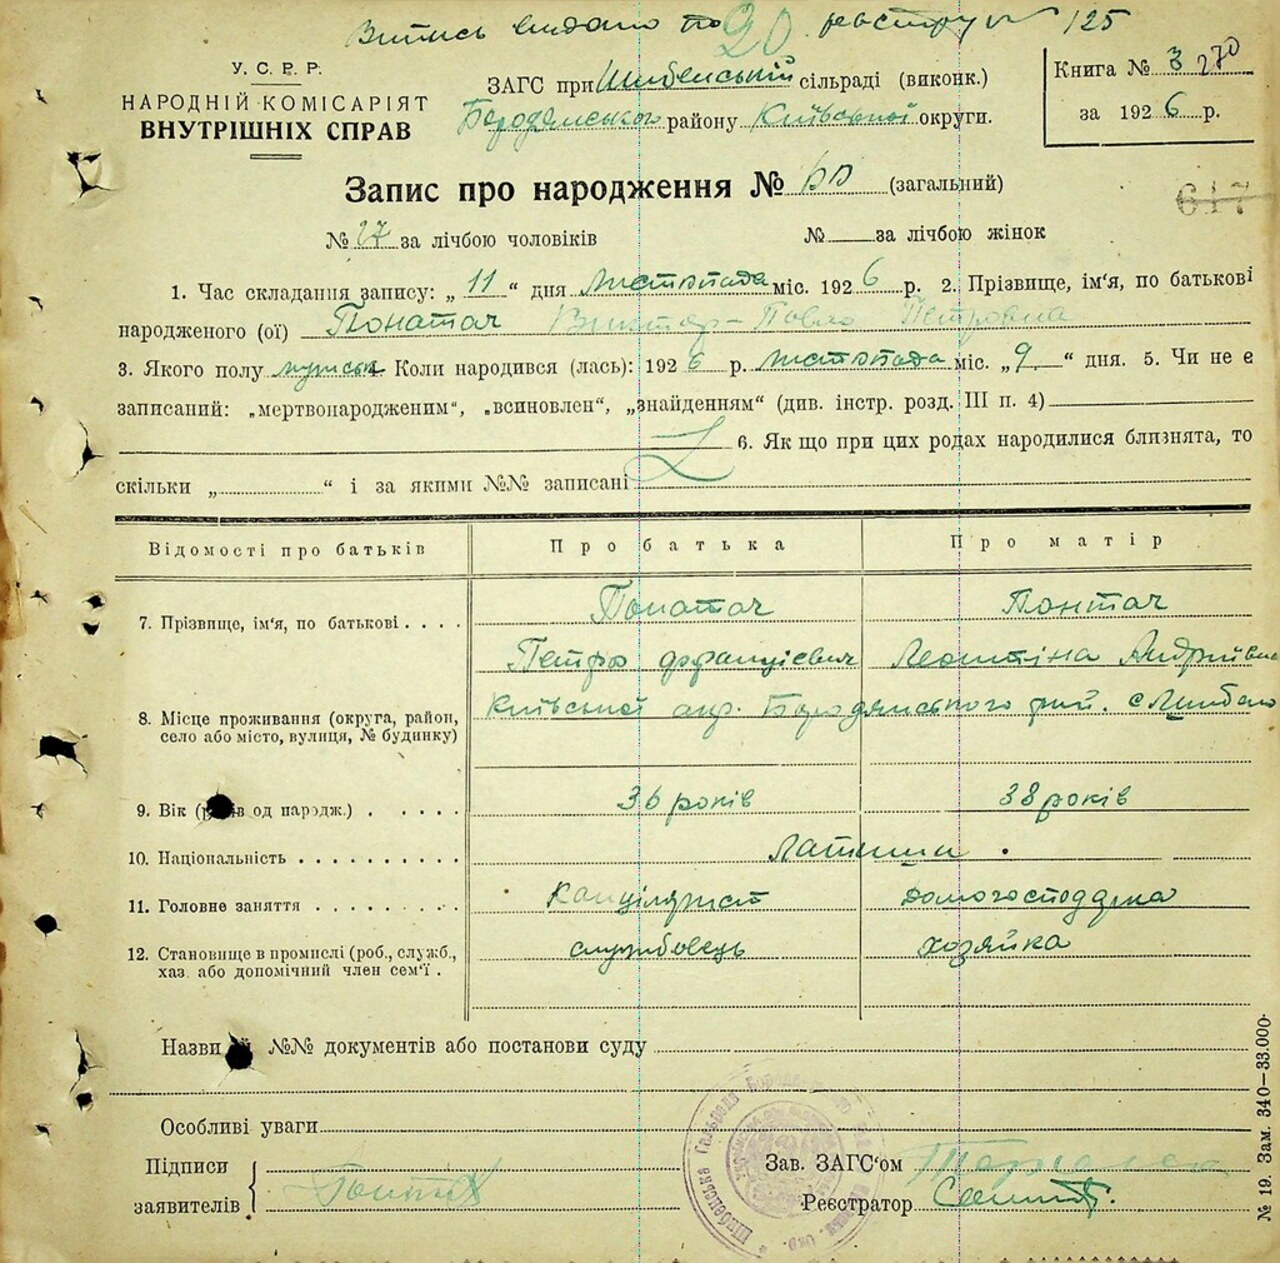 Витись видано по 20 реєстру № 125
У. С. Р. Р.
НАРОДНІЙ КОМІСАРІЯТ
ВНУТРІШНІХ СПРАВ
ЗАГС при Шибенській сільраді (виконк.)
Бородянського району Київської округи.
Книга № 3 270
за 1926 р.
Запис про народження № 55 (загальний)
617
№ 27 за лічбою чоловіків № за лічбою жінок
1. Час складання запису: „ 11 “ дня листопада міс. 1926 р. 2. Прізвище, ім‘я, по батькові
народженого (ої) Понатач Віктор-Павло Петровна
3. Якого полу мужськ. Коли народився (лась): 1926 р. листопада міс. „ 9 “ дня. 5. Чи не є
записаний: „мертвонародженим“, „всиновлен“, „знайденням“ (див. інстр. розд. III п. 4)
6. Як що при цих родах народилися близнята, то
скільки „ “ і за якими №№ записані
Відомості про батьків Про батька Про матір
7. Прізвище, ім‘я, по батькові . . . . Понатач Понтач
Петро Францієвич Леонтіна Андріївна
8. Місце проживання (округа, район, село або місто, вулиця, № будинку) Київської окр. Бородянського рай. с
9. Вік (років од народж.) . . . . . 36 років 38 років
10. Національність . . . . . . . . . . Латиши
11. Головне заняття . . . . . . . . . Канцілярист домогосподарка
12. Становище в промислі (роб., служб., хаз. або допомічний член сем‘ї . службовець хозяйка
Назви й №№ документів або постанови суду
Особливі уваги
Підписи
заявителів
Зав. ЗАГС‘ом
Реєстратор
№ 19. Зам. 340—33.000·